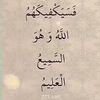 فَسَيَكْفِيكَهُمُ
اللَّهُ وَهُوَ
السَّمِيعُ
الْعَلِيمُ